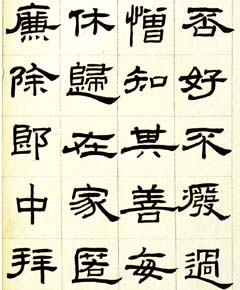 否好不癈過
憎知其善每
休歸在家匿
廉除郎中拜